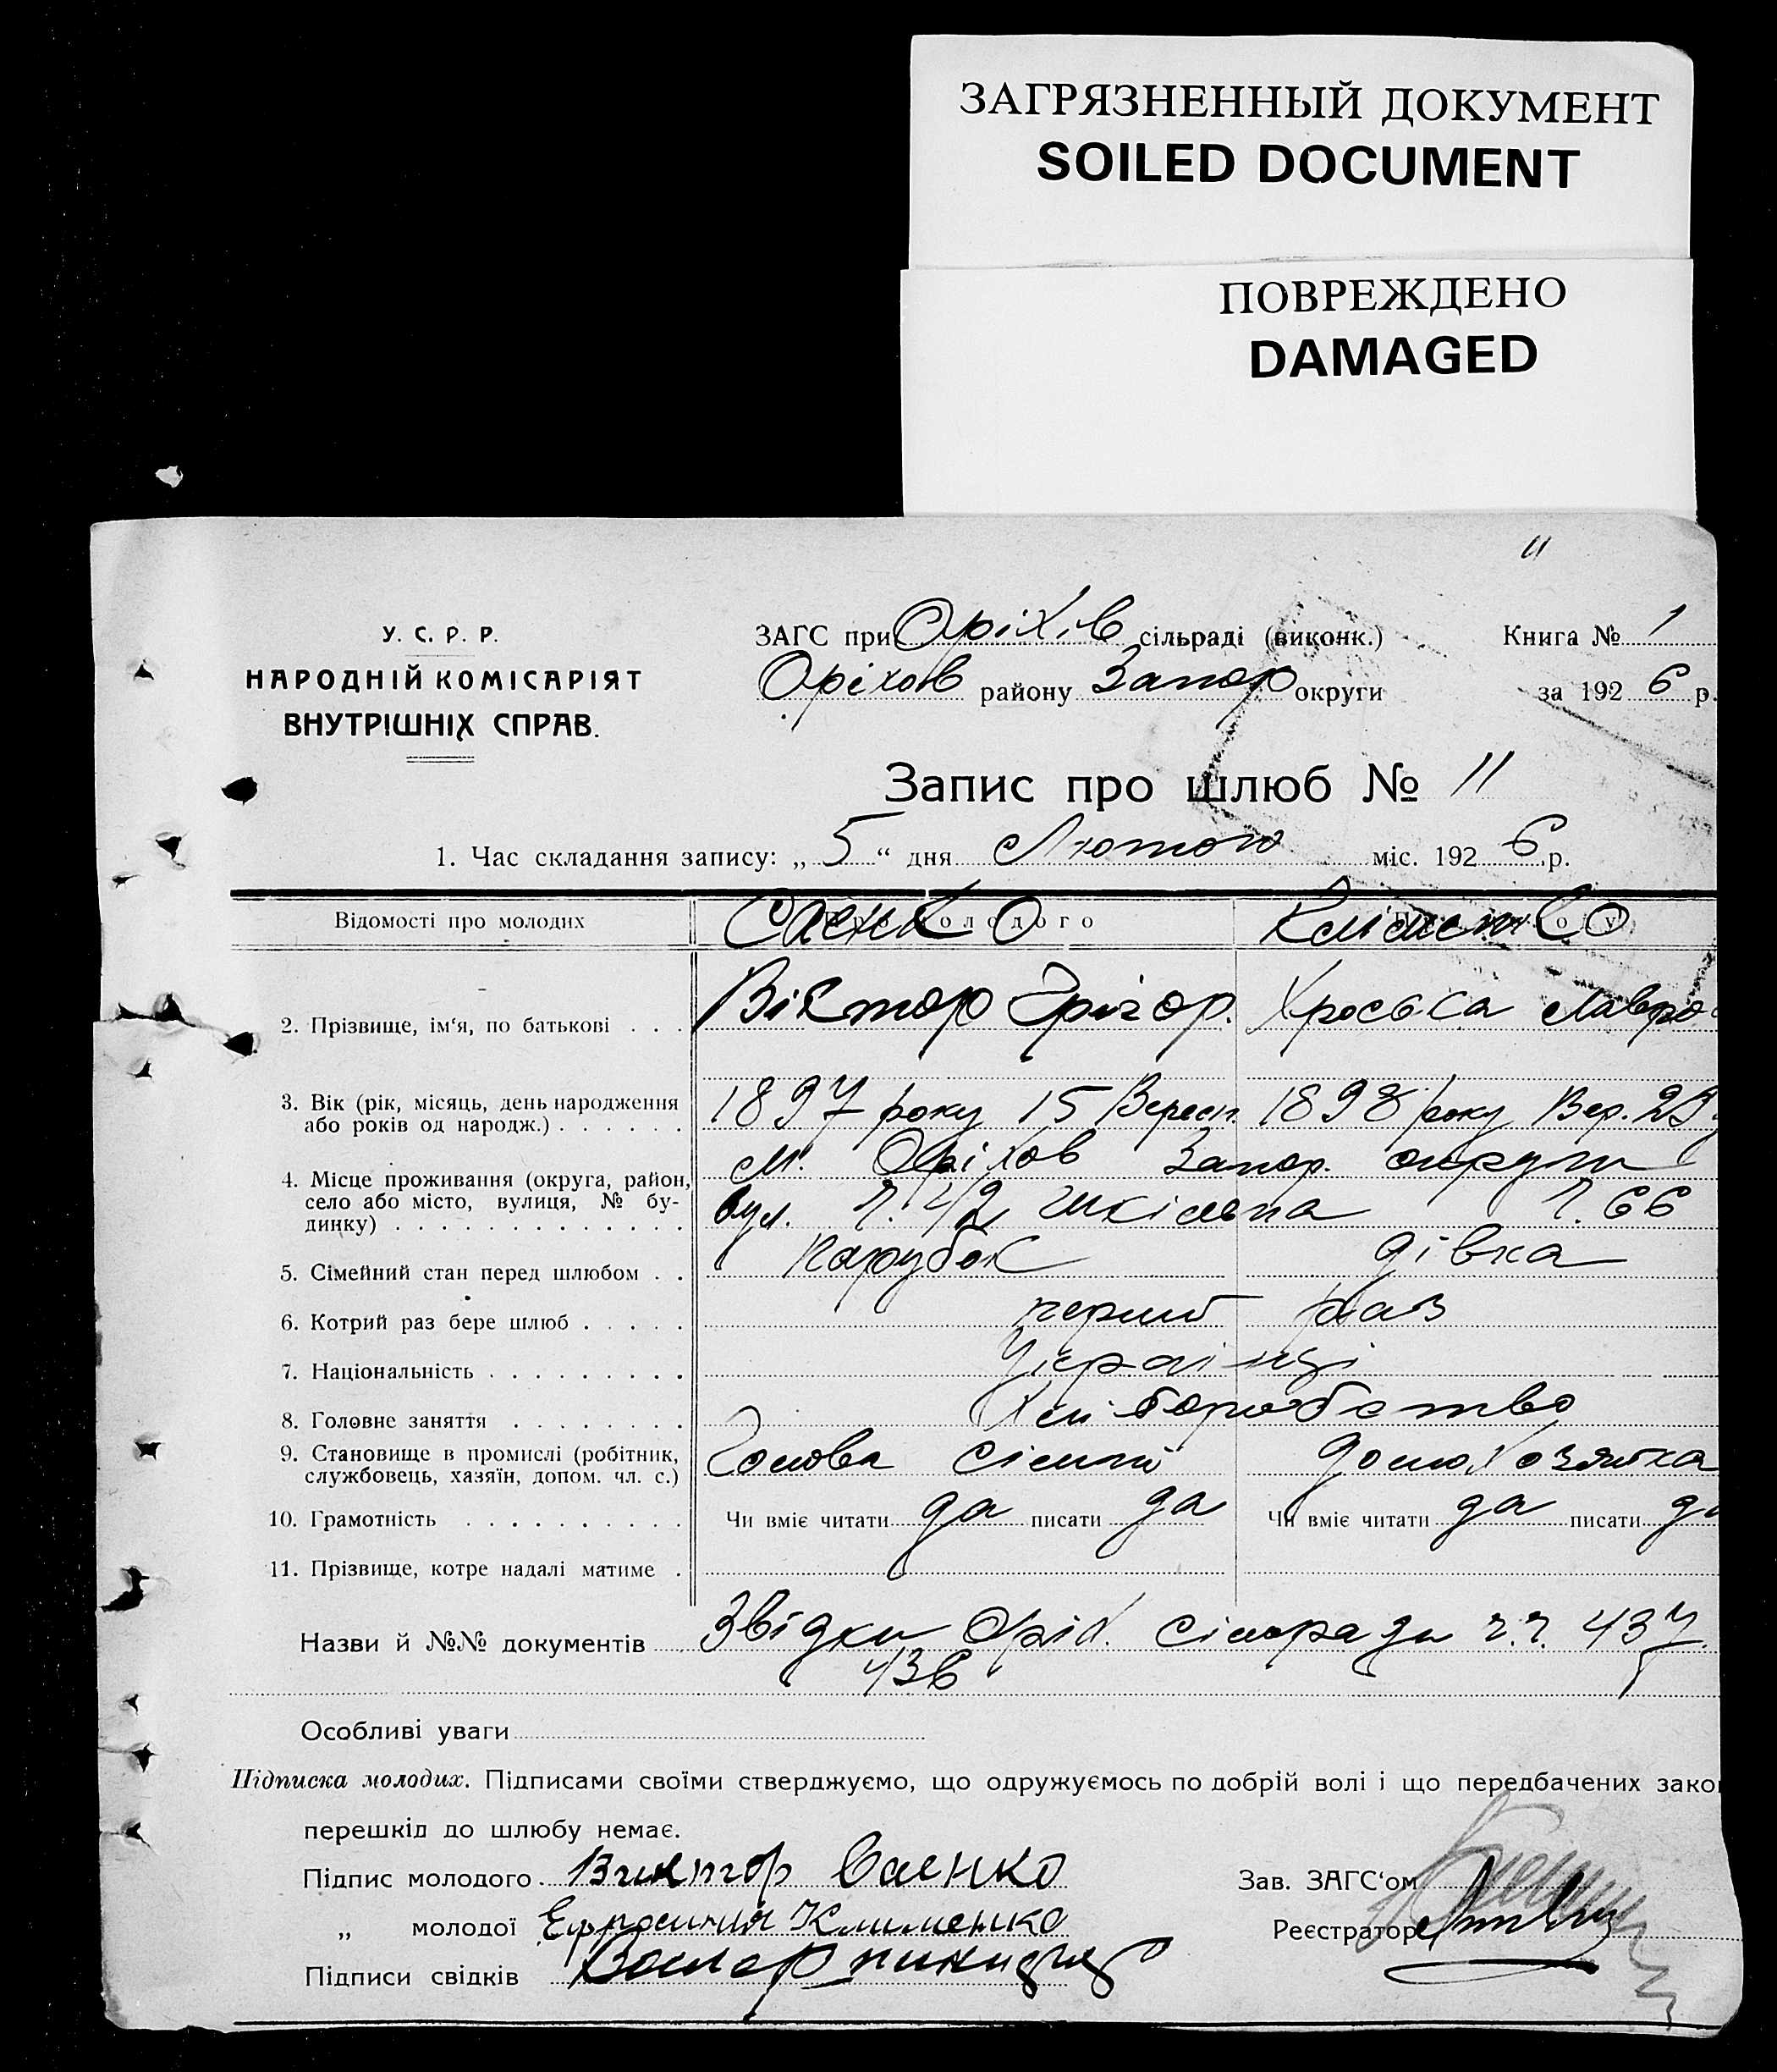 ЗАГРЯЗНЕННЫЙ ДОКУМЕНТ
SOILED DOCUMENT
ПОВРЕЖДЕНО
DAMAGED
11
У. С. Р. Р.
НАРОДНІЙ КОМІСАРІЯТ
ВНУТРІШНІХ СПРАВ.
ЗАГС при Оріхів сільраді (виконк.) Книга № 1
Оріхов району Запор округи за 192 6 р.
Запис про шлюб № 11
1. Час складання запису: „ 5 “ дня Лютого міс. 192 6 р.
Відомості про молодих Саенко Кліменко
2. Прізвище, ім‘я, по батькові . . . Віктор Грігор. Хроська Лавро
3. Вік (рік, місяць, день народження
або років од народж.) . . . . . . 1897 року 15 Вересн. 1898 року Вер. 23
4. Місце проживання (округа, район, м. Оріхов Запор. округи
село або місто, вулиця, № бу-
динку) . . . . . . . . . . . . . вул. Ч. 42 Шкільна Ч. 66
5. Сімейний стан перед шлюбом . . Парубок дівка
6. Котрий раз бере шлюб . . . . . перший раз
7. Національність . . . . . . . . . Українці
8. Головне заняття . . . . . . . . Хліборобство
9. Становище в промислі (робітник,
службовець, хазяїн, допом. чл. с.) Голова сімьї домохозяйка
10. Грамотність . . . . . . . . . . Чи вміє читати да писати да Чи вміє читати да писати да
11. Прізвище, котре надалі матиме .
Назви й №№ документів Звідки Оріх. сільради ч.ч. 437
436
Особливі уваги
Підписка молодих. Підписами своїми стверджуємо, що одружуємось по добрій волі і що передбачених зако
перешкід до шлюбу немає.
Підпис молодого Виктор Саенко Зав. ЗАГС‘ом
„ молодої Ефросиния Клименко Реєстратор
Підписи свідків